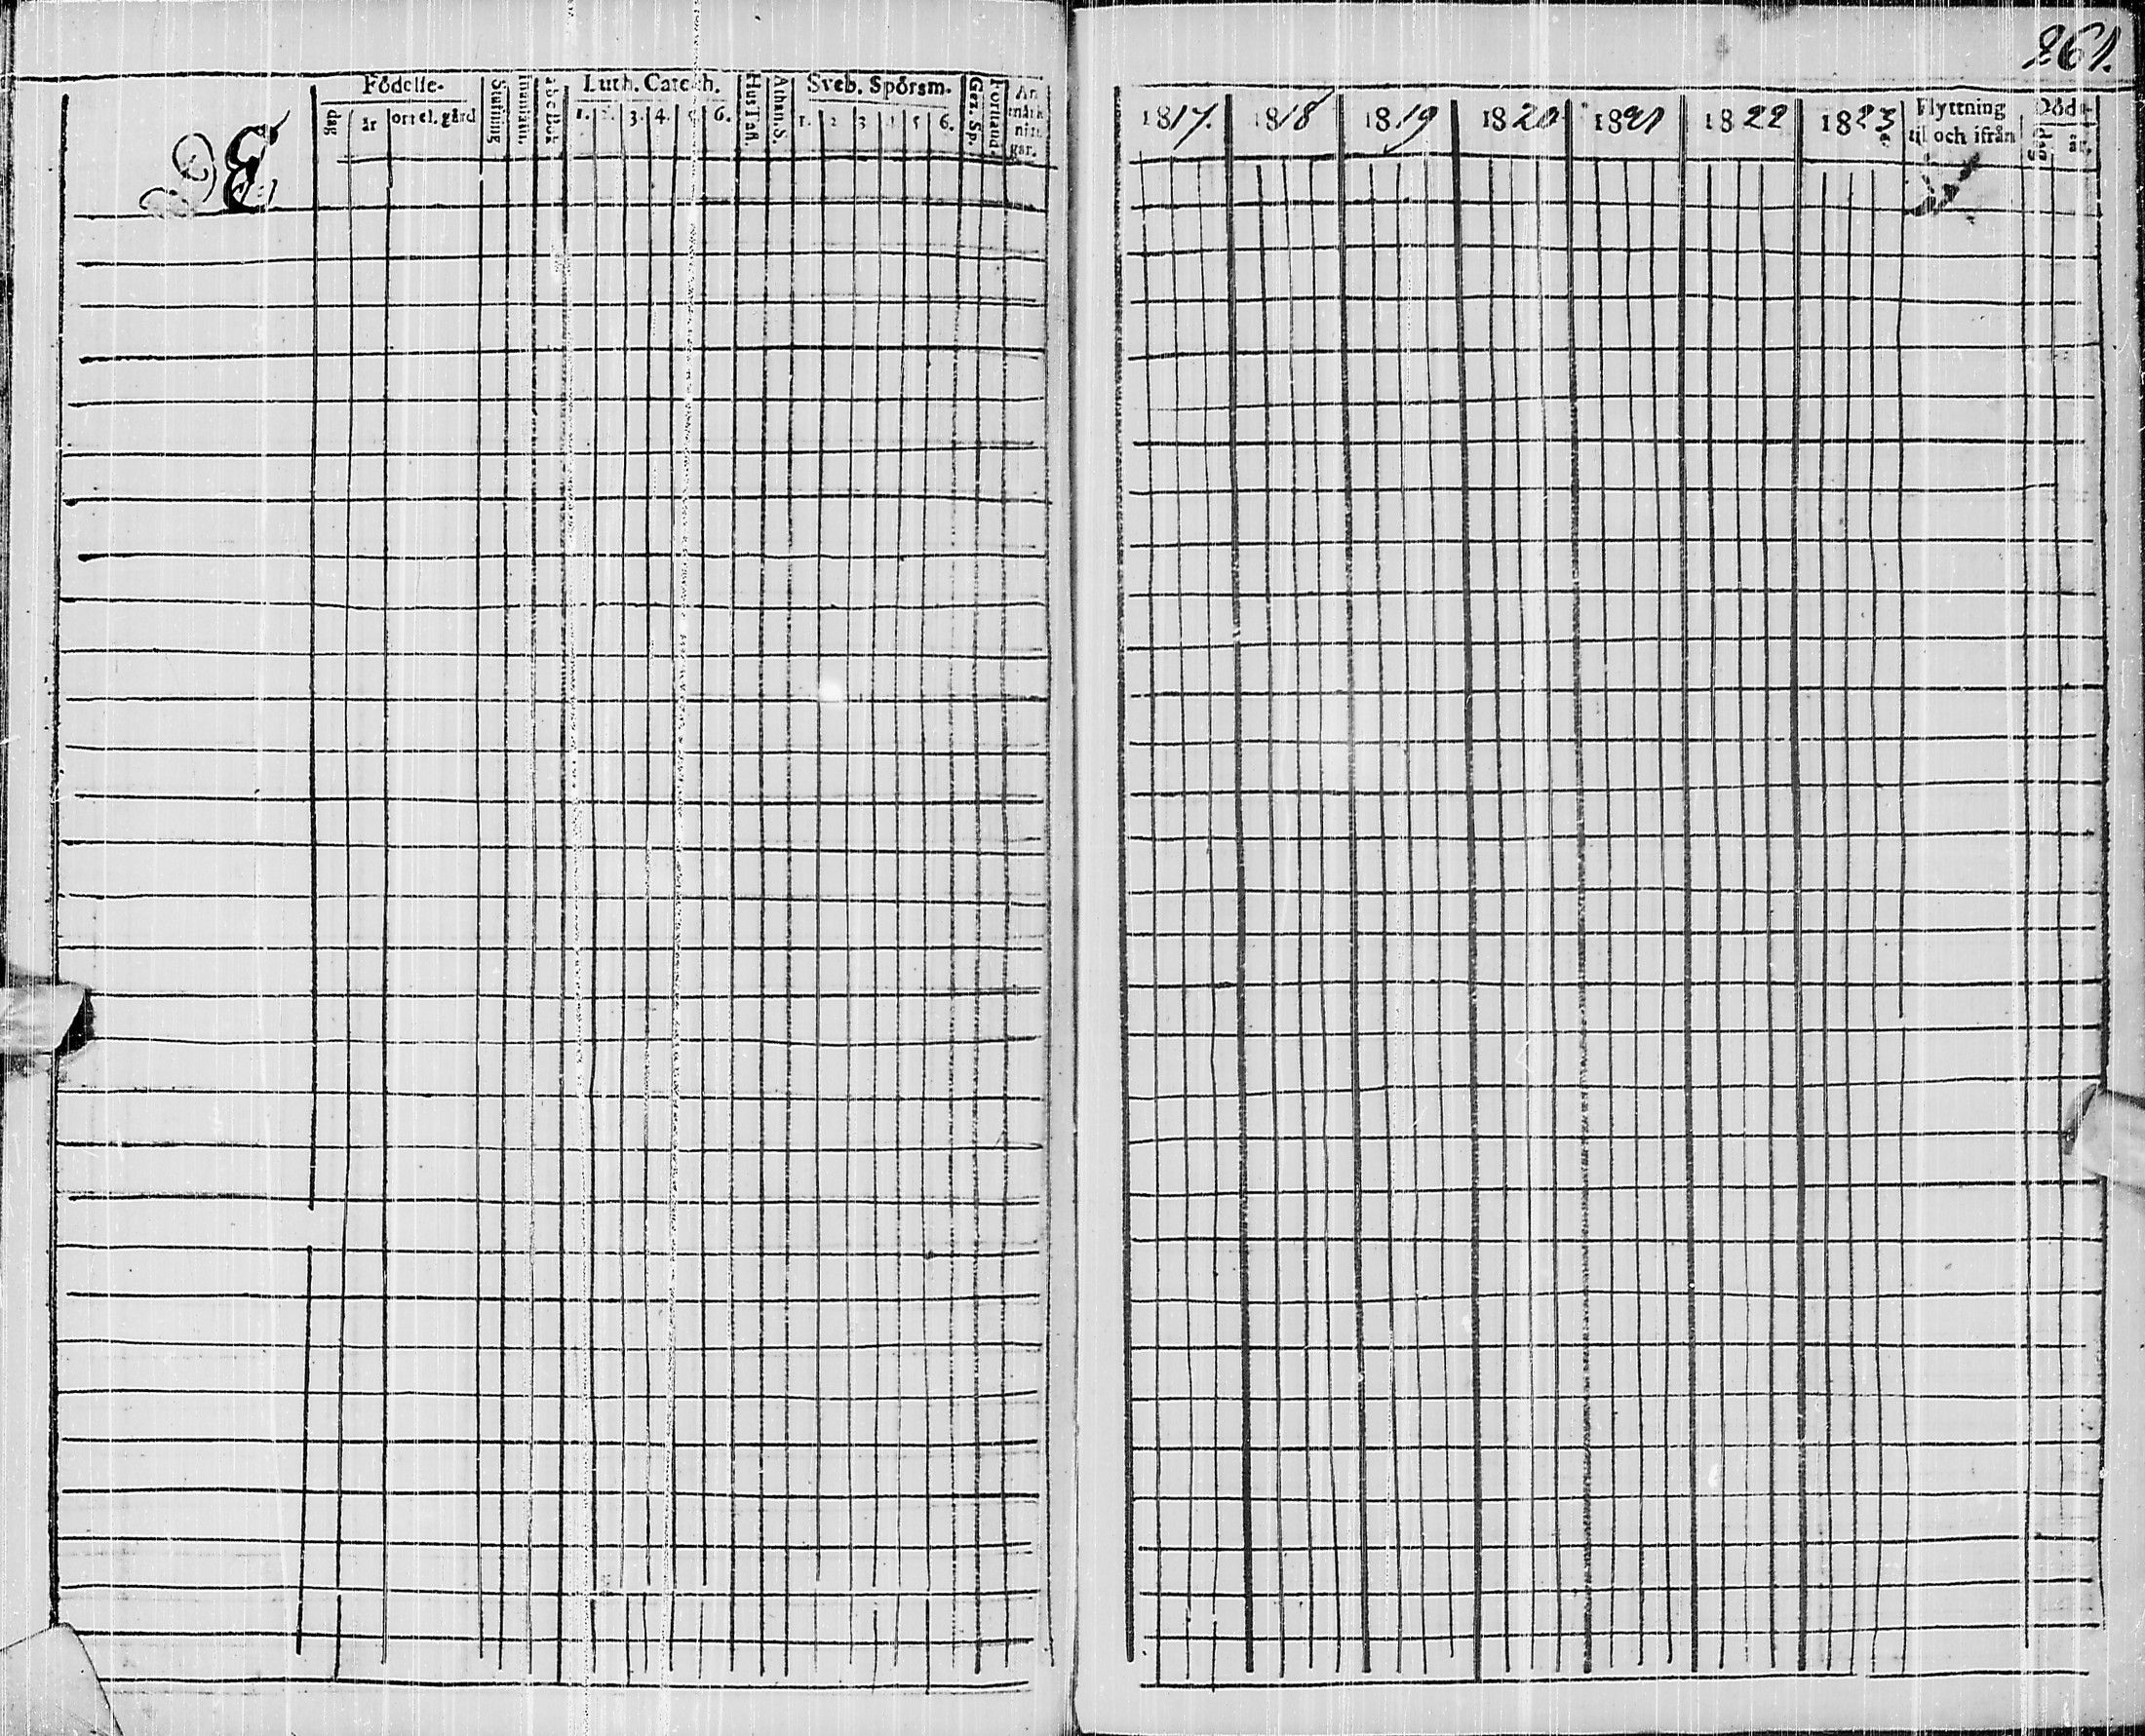 261.
Födelse-
dag
år
ort el. gård
Luth. Catech.
1.
2.
3.
4.
5
6.
Hus Tafl.
Athan. S.
Sveb. Spörsm.
1.
2
3
4
5
6.
Gez. Sp.
Förstånd.
An
märk
nin
gar.
1817.
1818
1819
1820
1821
1822
1823
Flyttning
til och ifrån
Död
dag
år.